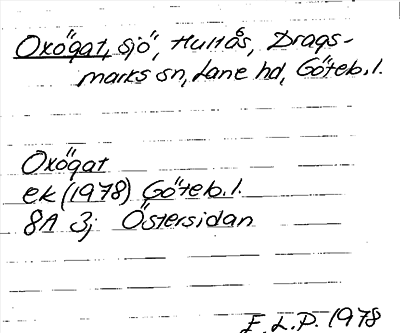 Oxögat, sjö, Hultås, Drags-
marks sn, Lane hd, Göteb. l.
Oxögat
ek (1978) Göteb. l.
8A 3j Östersidan
E. L. P. 1978